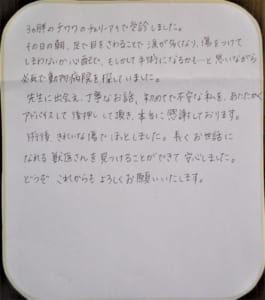 3ヵ月のチワワのチェリーアイで受診しました。
その日の朝、足で目をさわることで涙が多くなり、傷をつけて
しまわないか心配で、もしかして手術になるかも…と思いながら
必死で動物病院を探していました。
先生に出会え、丁寧なお話、初めてで不安な私を、あたたかく
アドバイスして後押しして頂き、本当に感謝しております。
術後、きれいな傷でほっとしました。長くお世話に
なれる獣医さんを見つけることができて安心しました。
どうぞ これからも よろしくお願いいたします。